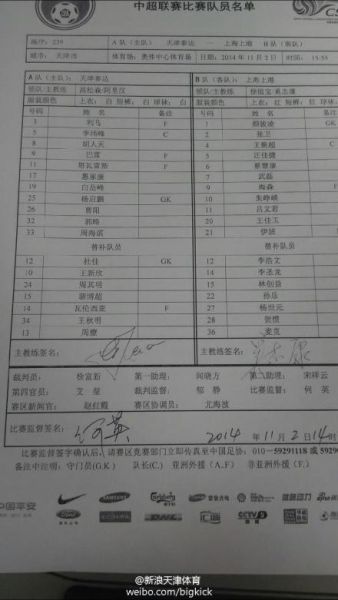 中超联赛比赛队员名单
场序：239 A队（主队） 天津泰达 — 上海上港 B队（客队）
城市：天津市 体育场：奥体中心体育场 日期：2014年11月2日 时间：15:35
A队（主队）：天津泰达 B队（客队）：上海上港
领队/主教练
服装颜色 上衣：白 短裤：白 球袜：白 服装颜色 上衣：红 短裤：红 球袜：
号码 姓名 备注 号码 姓名
5 李玮峰 C 2 张卫
6 胡人天 4 王燊超 C
9 巴雷 F 5 汪佳捷
11 塔瓦雷斯 F 6 蔡慧康
17 惠家康 7 武磊
19 白岳峰 9 海森 F
25 杨启鹏 GK 10 朱峥嵘
26 曹阳 11 吕文君
32 郭皓 18 王佳玉
33 周海滨 21 伊波
替补队员 替补队员
12 杜佳 GK 12 李浩文
10 王新欣 14 李圣龙
24 周其明 15 林创益
15 聂涛 22 孙乐
14 瓦伦西亚 F 27 杨世元
34 王秋明 28 贺惯
13 周燎 36 麦克
主教练签名： 主教练签名：
裁判员： 徐富新 第一助理： 闻晓方 第二助理： 宋祥云
第四官员： 艾堃 裁判监督： 郁静 比赛监督： 何英
赛区新闻官： 赵红霞 赛区协调员： 尤海波
比赛监督签名： 何英 2014年11月2日14时
比赛监督签字确认后，请赛区竞赛部门立即传真至中国足协：010-59291118 或
备注中注明：守门员(G.K) 队长(C.) 亚洲外援（A.F) 非亚洲外援（F.)
中国平安 NIKE SAMSUNG Carlsberg Ford
DHL 汇源 CCTV 5
@新浪天津体育
weibo.com/bigkick